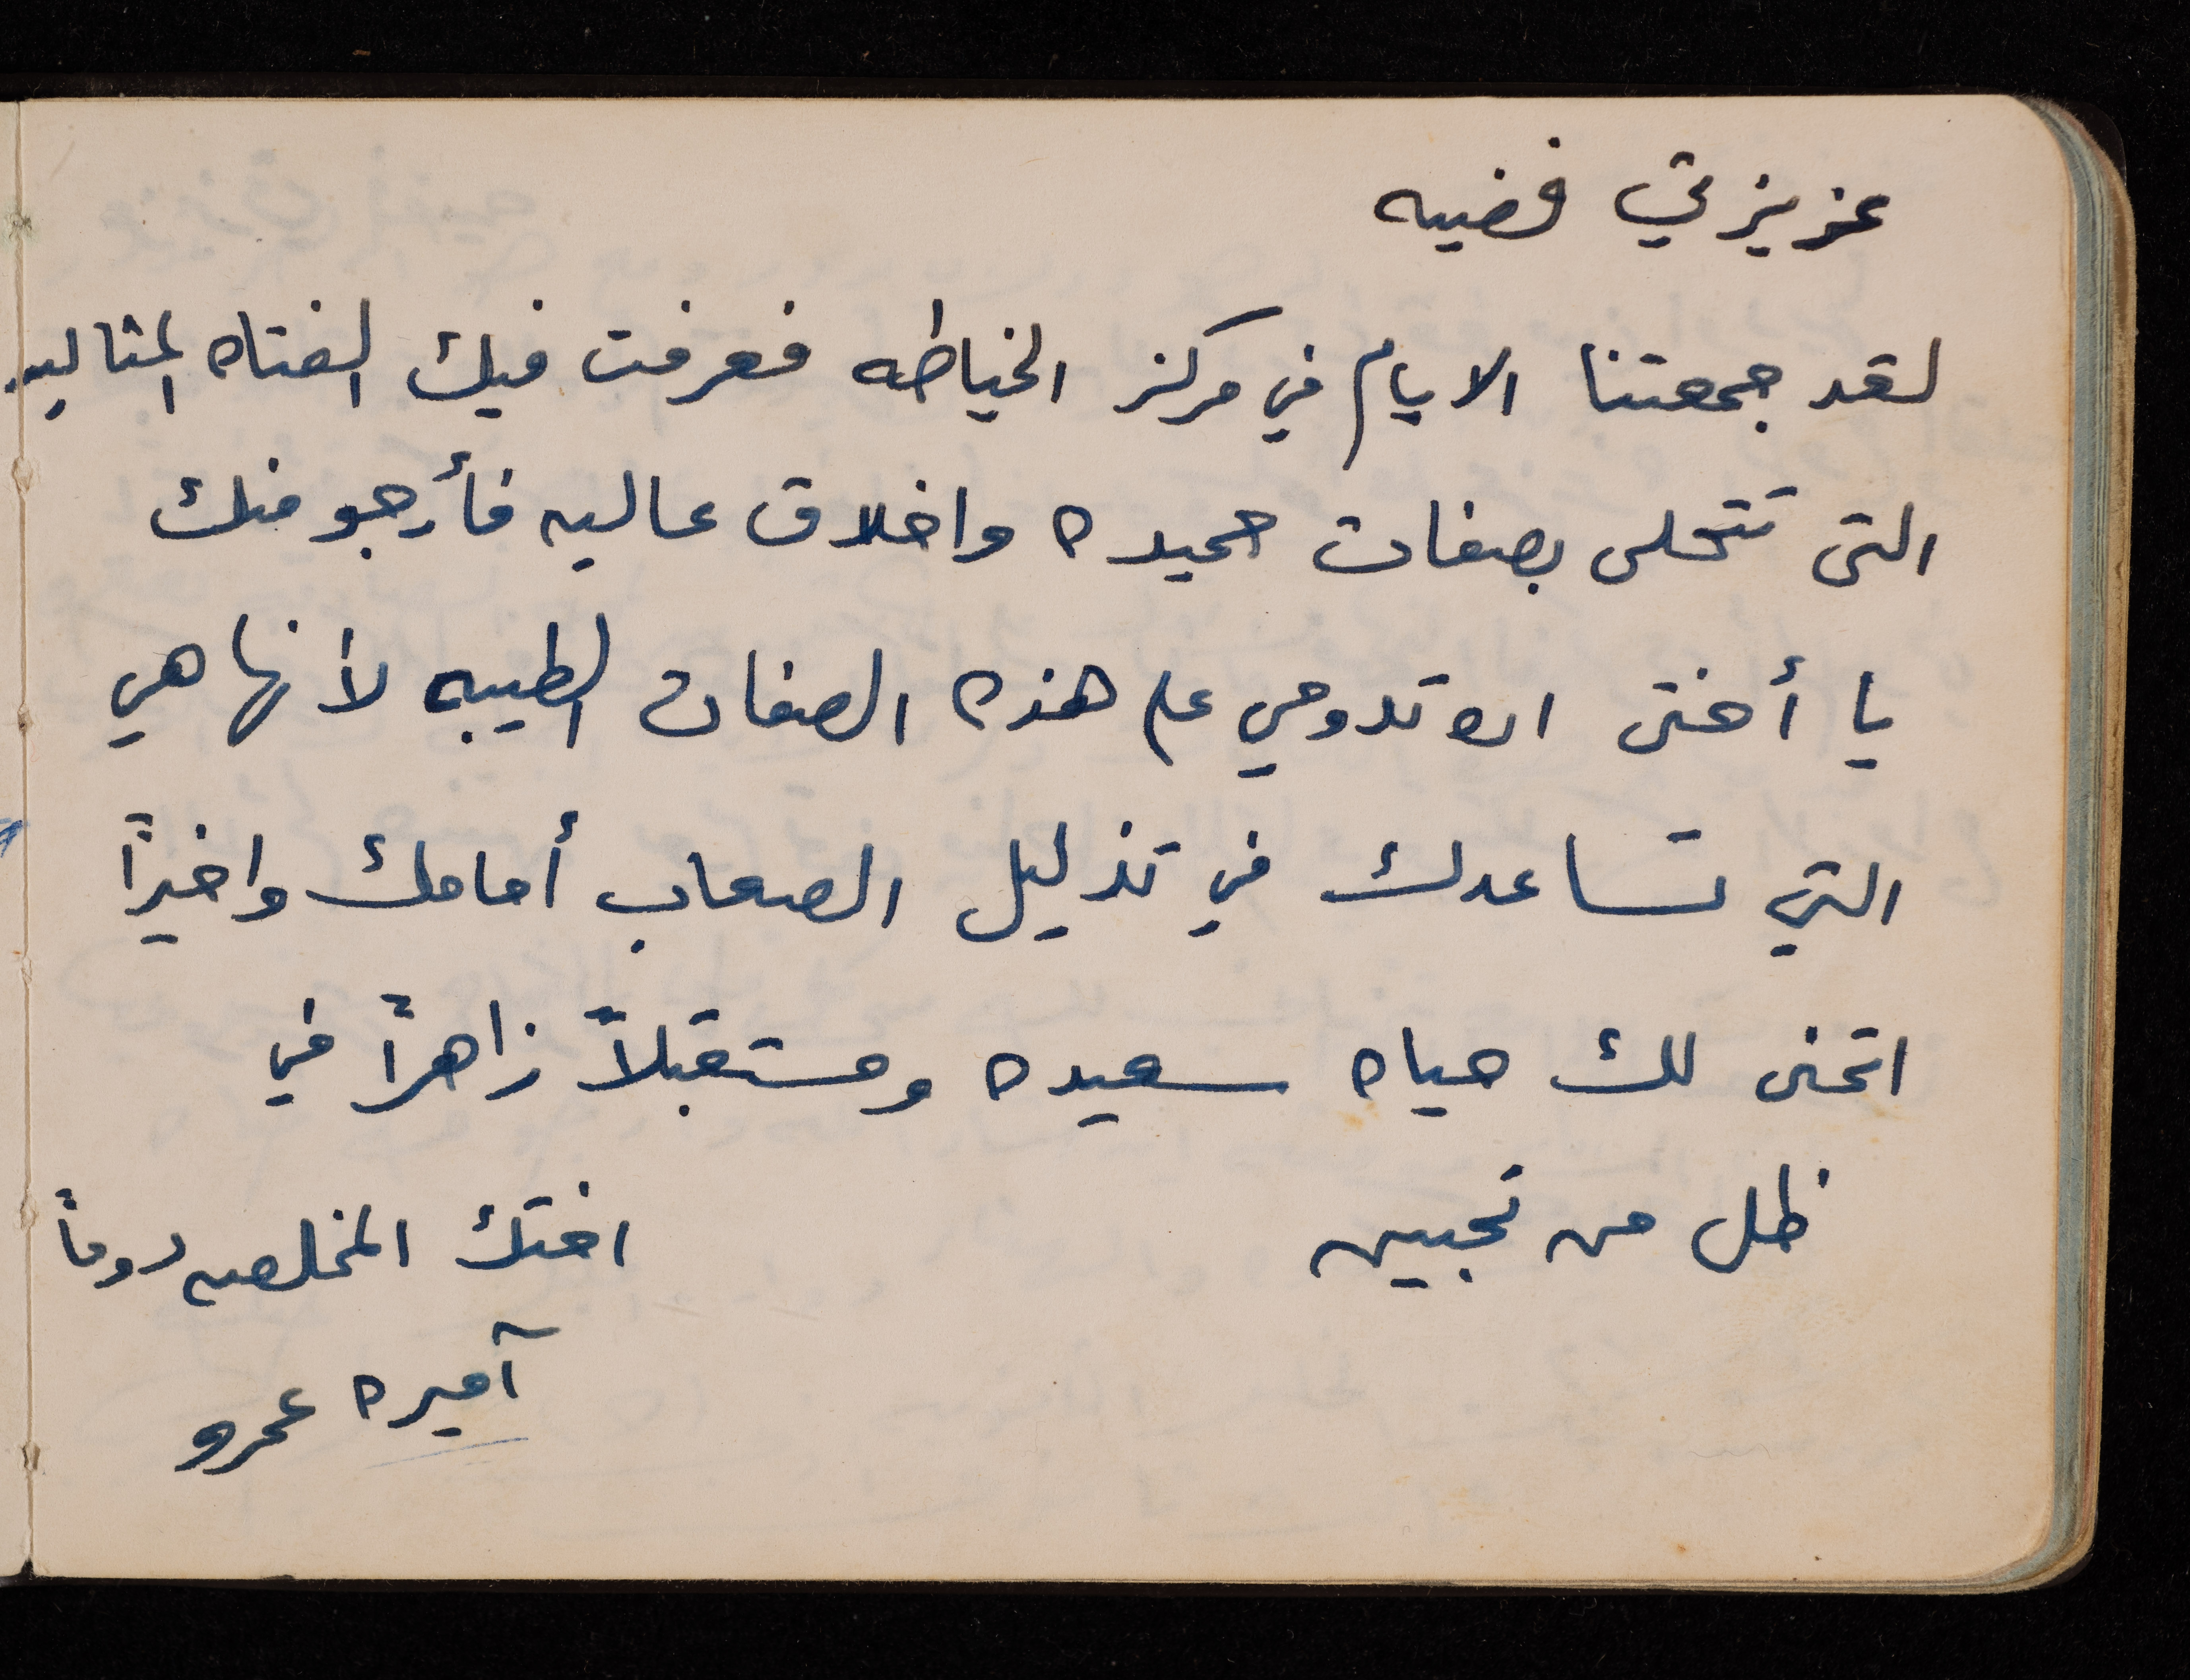 عزيزتي فضيه
لقد جمعتنا الايام في مركز الخياطه فعرفت فيك الفتاه المثاليه
التى تتحلى بصفات حميده واخلاق عاليه فأرجو منك
يا أختى ان تدومي على هذه الصفات الطيبه لأنها هي
التي تساعدك في تذليل الصعاب أمامك واخيراً
اتمنى لك حياه سعيده ومستقبلاً زاهراً في
ظل من تحبين
اختك المخلصه دوماً
آميره عمرو